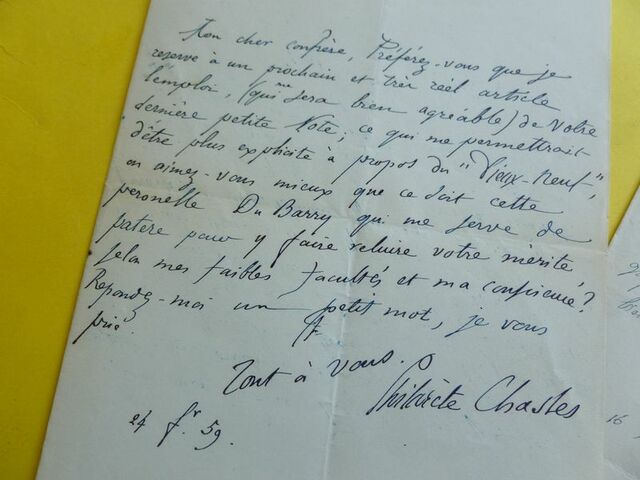 Mon cher confrère, Préférez-vous que je
reserve à un prochain et très réel article
l'emploi, (qui me sera bien agréable) de votre
dernière petite Note; ce qui me permettrait
d'être plus explicite à propos du "Vieux-Neuf,"
ou aimez-vous mieux que ce soit cette
peronelle Du Barry qui me serve de
patère pour y faire reluire votre mérite,
selon mes faibles facultés et ma conscience?
Repondez-moi un petit mot, je vous
prie.
Tout à vous.
Philarète Chasles
24 fr 59.
16